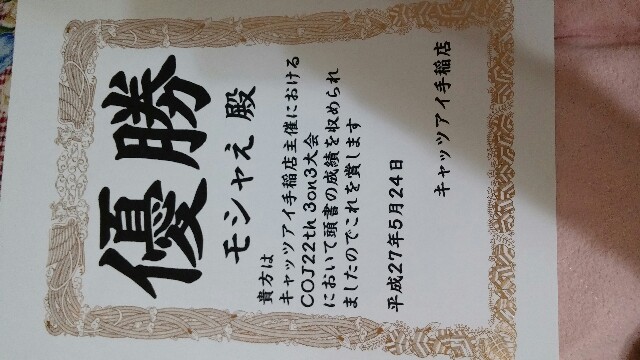 優勝
モシャえ 殿
貴方は
キャッツアイ手稲店主催における
COJ22th 3on3大会
において頭書の成績を収められ
ましたのでこれを賞します
平成27年5月24日
キャッツアイ手稲店